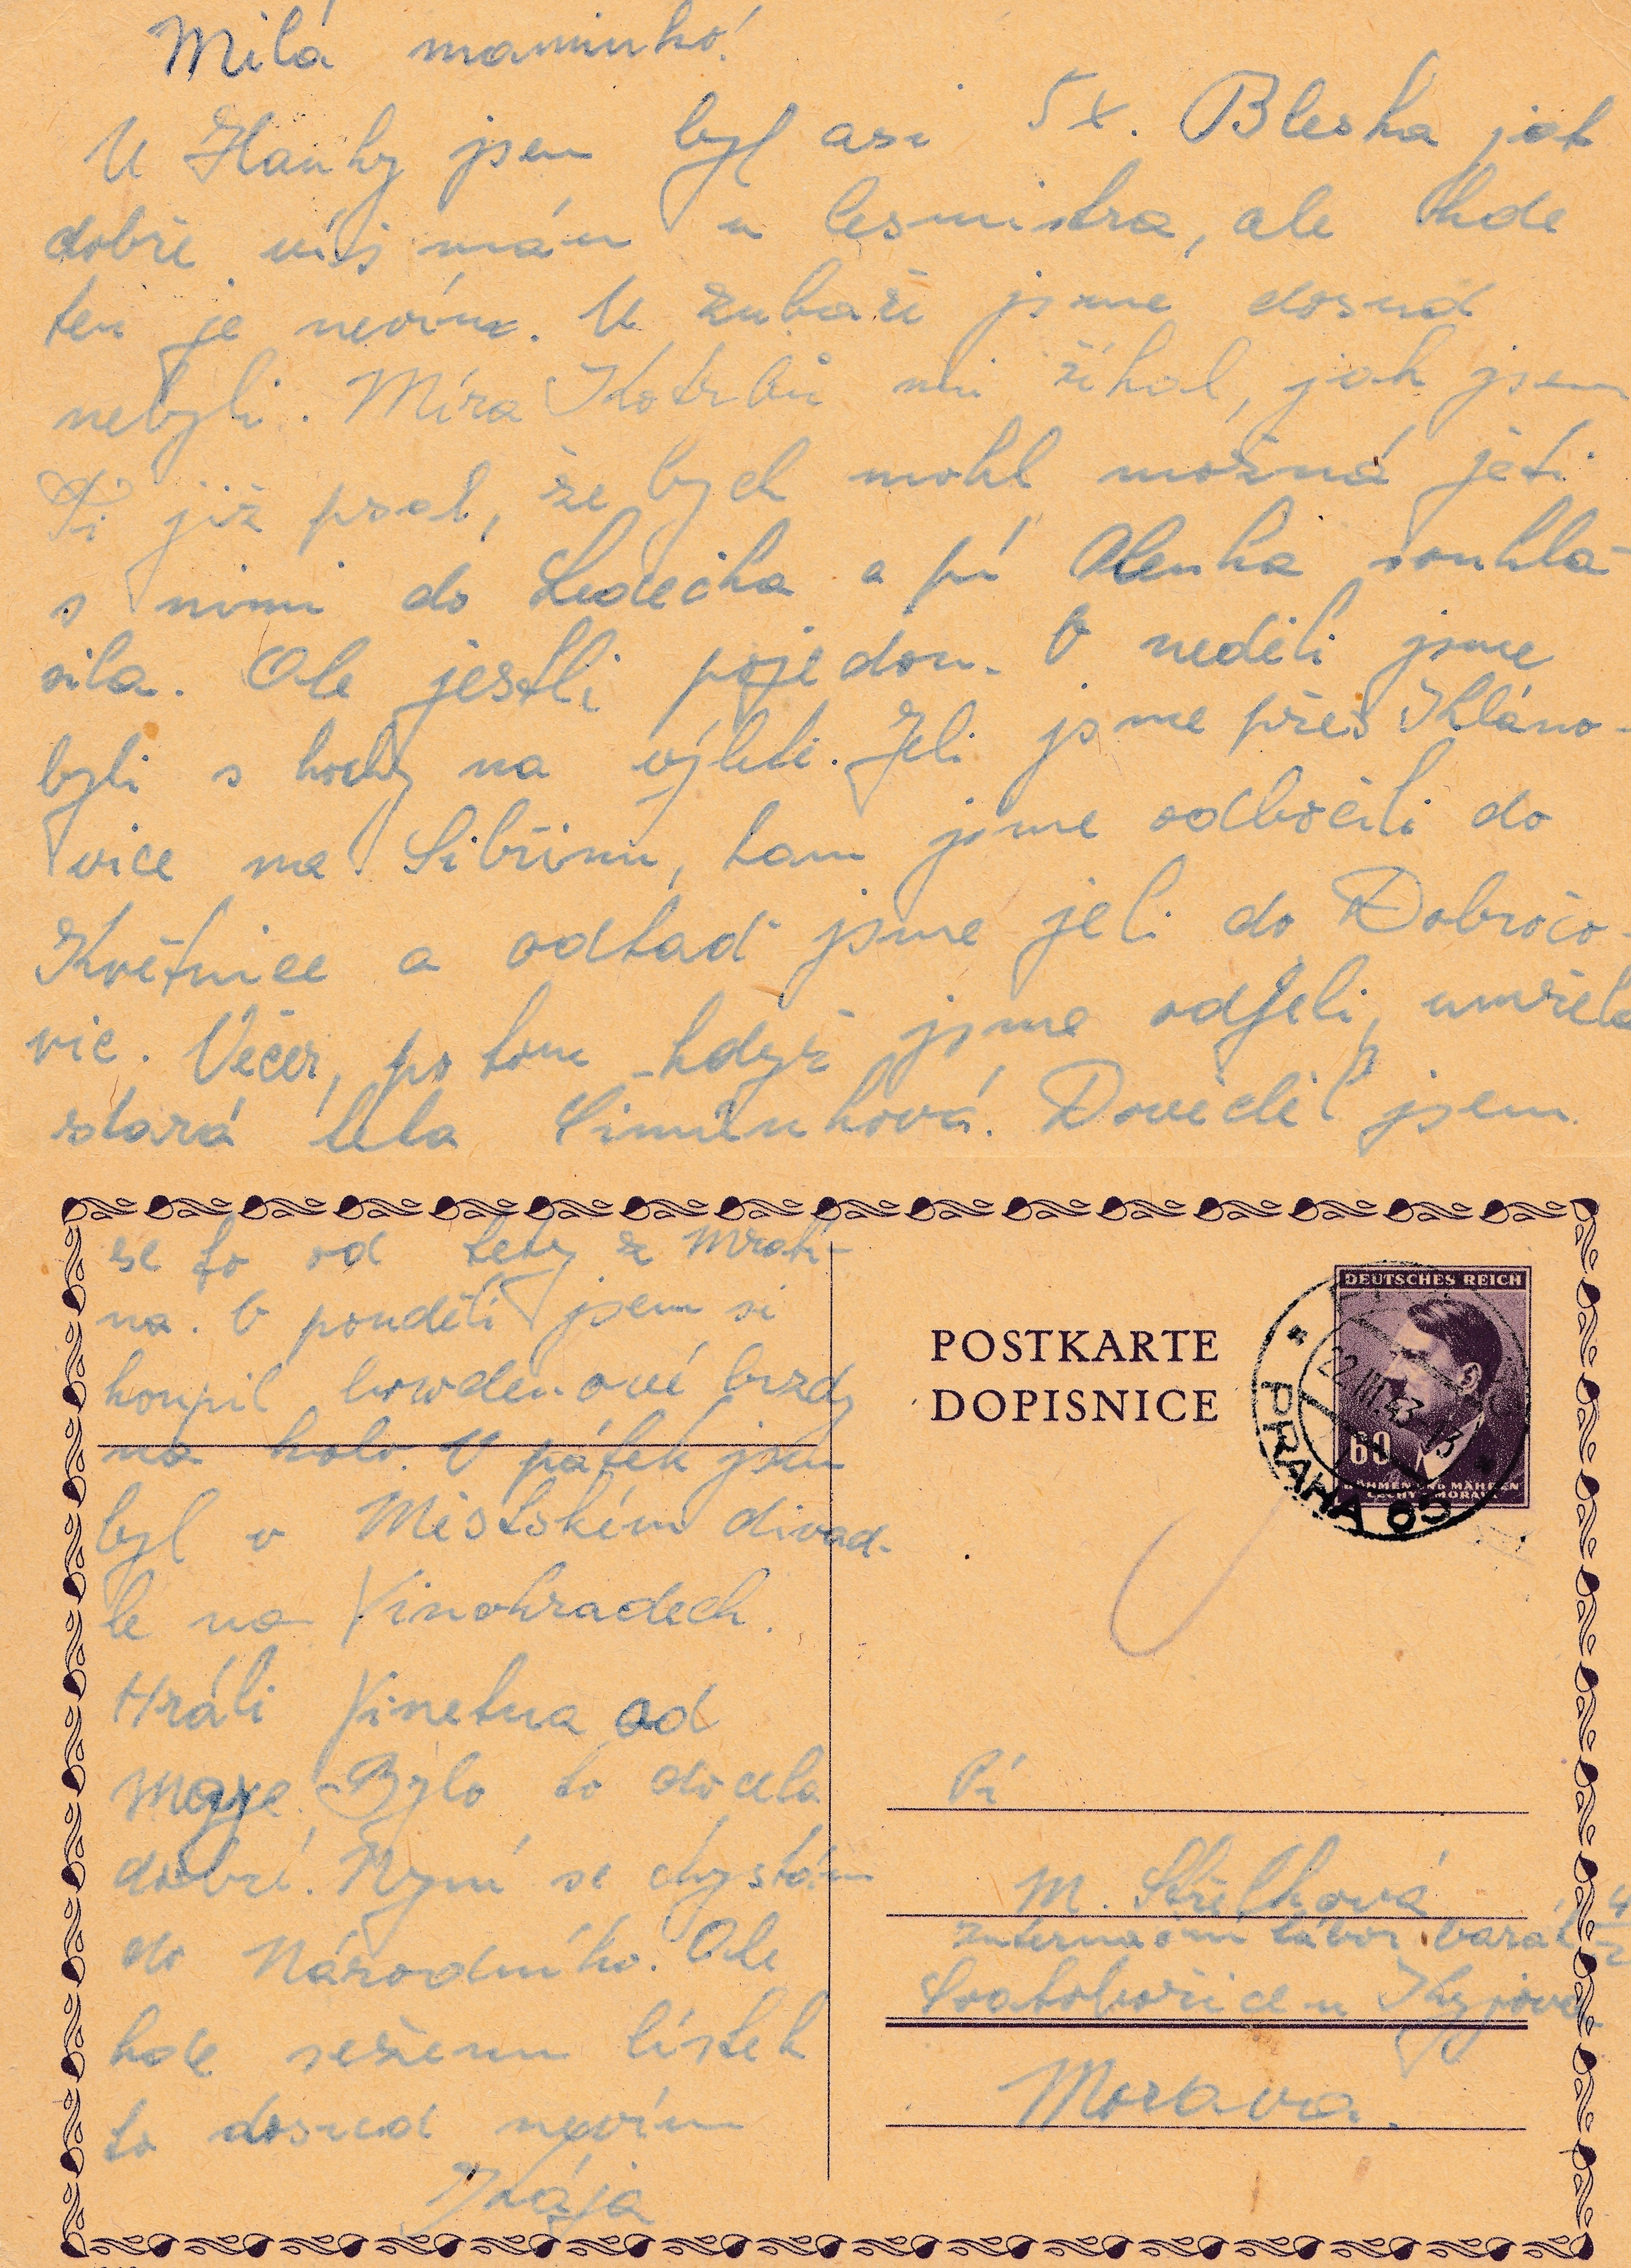 Milá maminko!
U Hanky jsem byl asi 5x. Bleska jak
dobře víš mám u lesmistra, ale kde
ten je nevím. U zubaře jsme dosud
nebyli. Míra Kotrbů mi říkal, jak jsem
Ti již psal, že bych mohl možná jeti
s nimi do Ledečka a pí Alenka souhla-
sila. Ale jestli pojedou. V neděli jsme
byli s hochy na výletě. Jeli jsme přes Kláno-
vice na Sibřinu, tam jsme odbočili do
Květnice a odtad jsme jeli do Dobročo-
vic. Večer, po tom když jsme odjeli, umřela
stará teta Šimůnková. Dověděl jsem
se to od tety z Mrat-
na. V pondělí jsem si
koupil bowdenové brzdy
na kolo. V pátek jsem
byl v Městském divad-
le na Vinohradech.
Hráli Vinetua od
Maye. Bylo to docela
dobré. Nyní se chystám
do Národního. Ale
kde seženu lístek
to dosud nevím
Kája
POSTKARTE
DOPISNICE
DEUTSCHES REICH
60
BÖHMEN UND MÄHREN
ČECHY A MORAVA
22.III.43 13
PRAHA 65
Pí
M. Střelková
Internační tábor barák 4
Svatobořice u Kyjova
Morava.